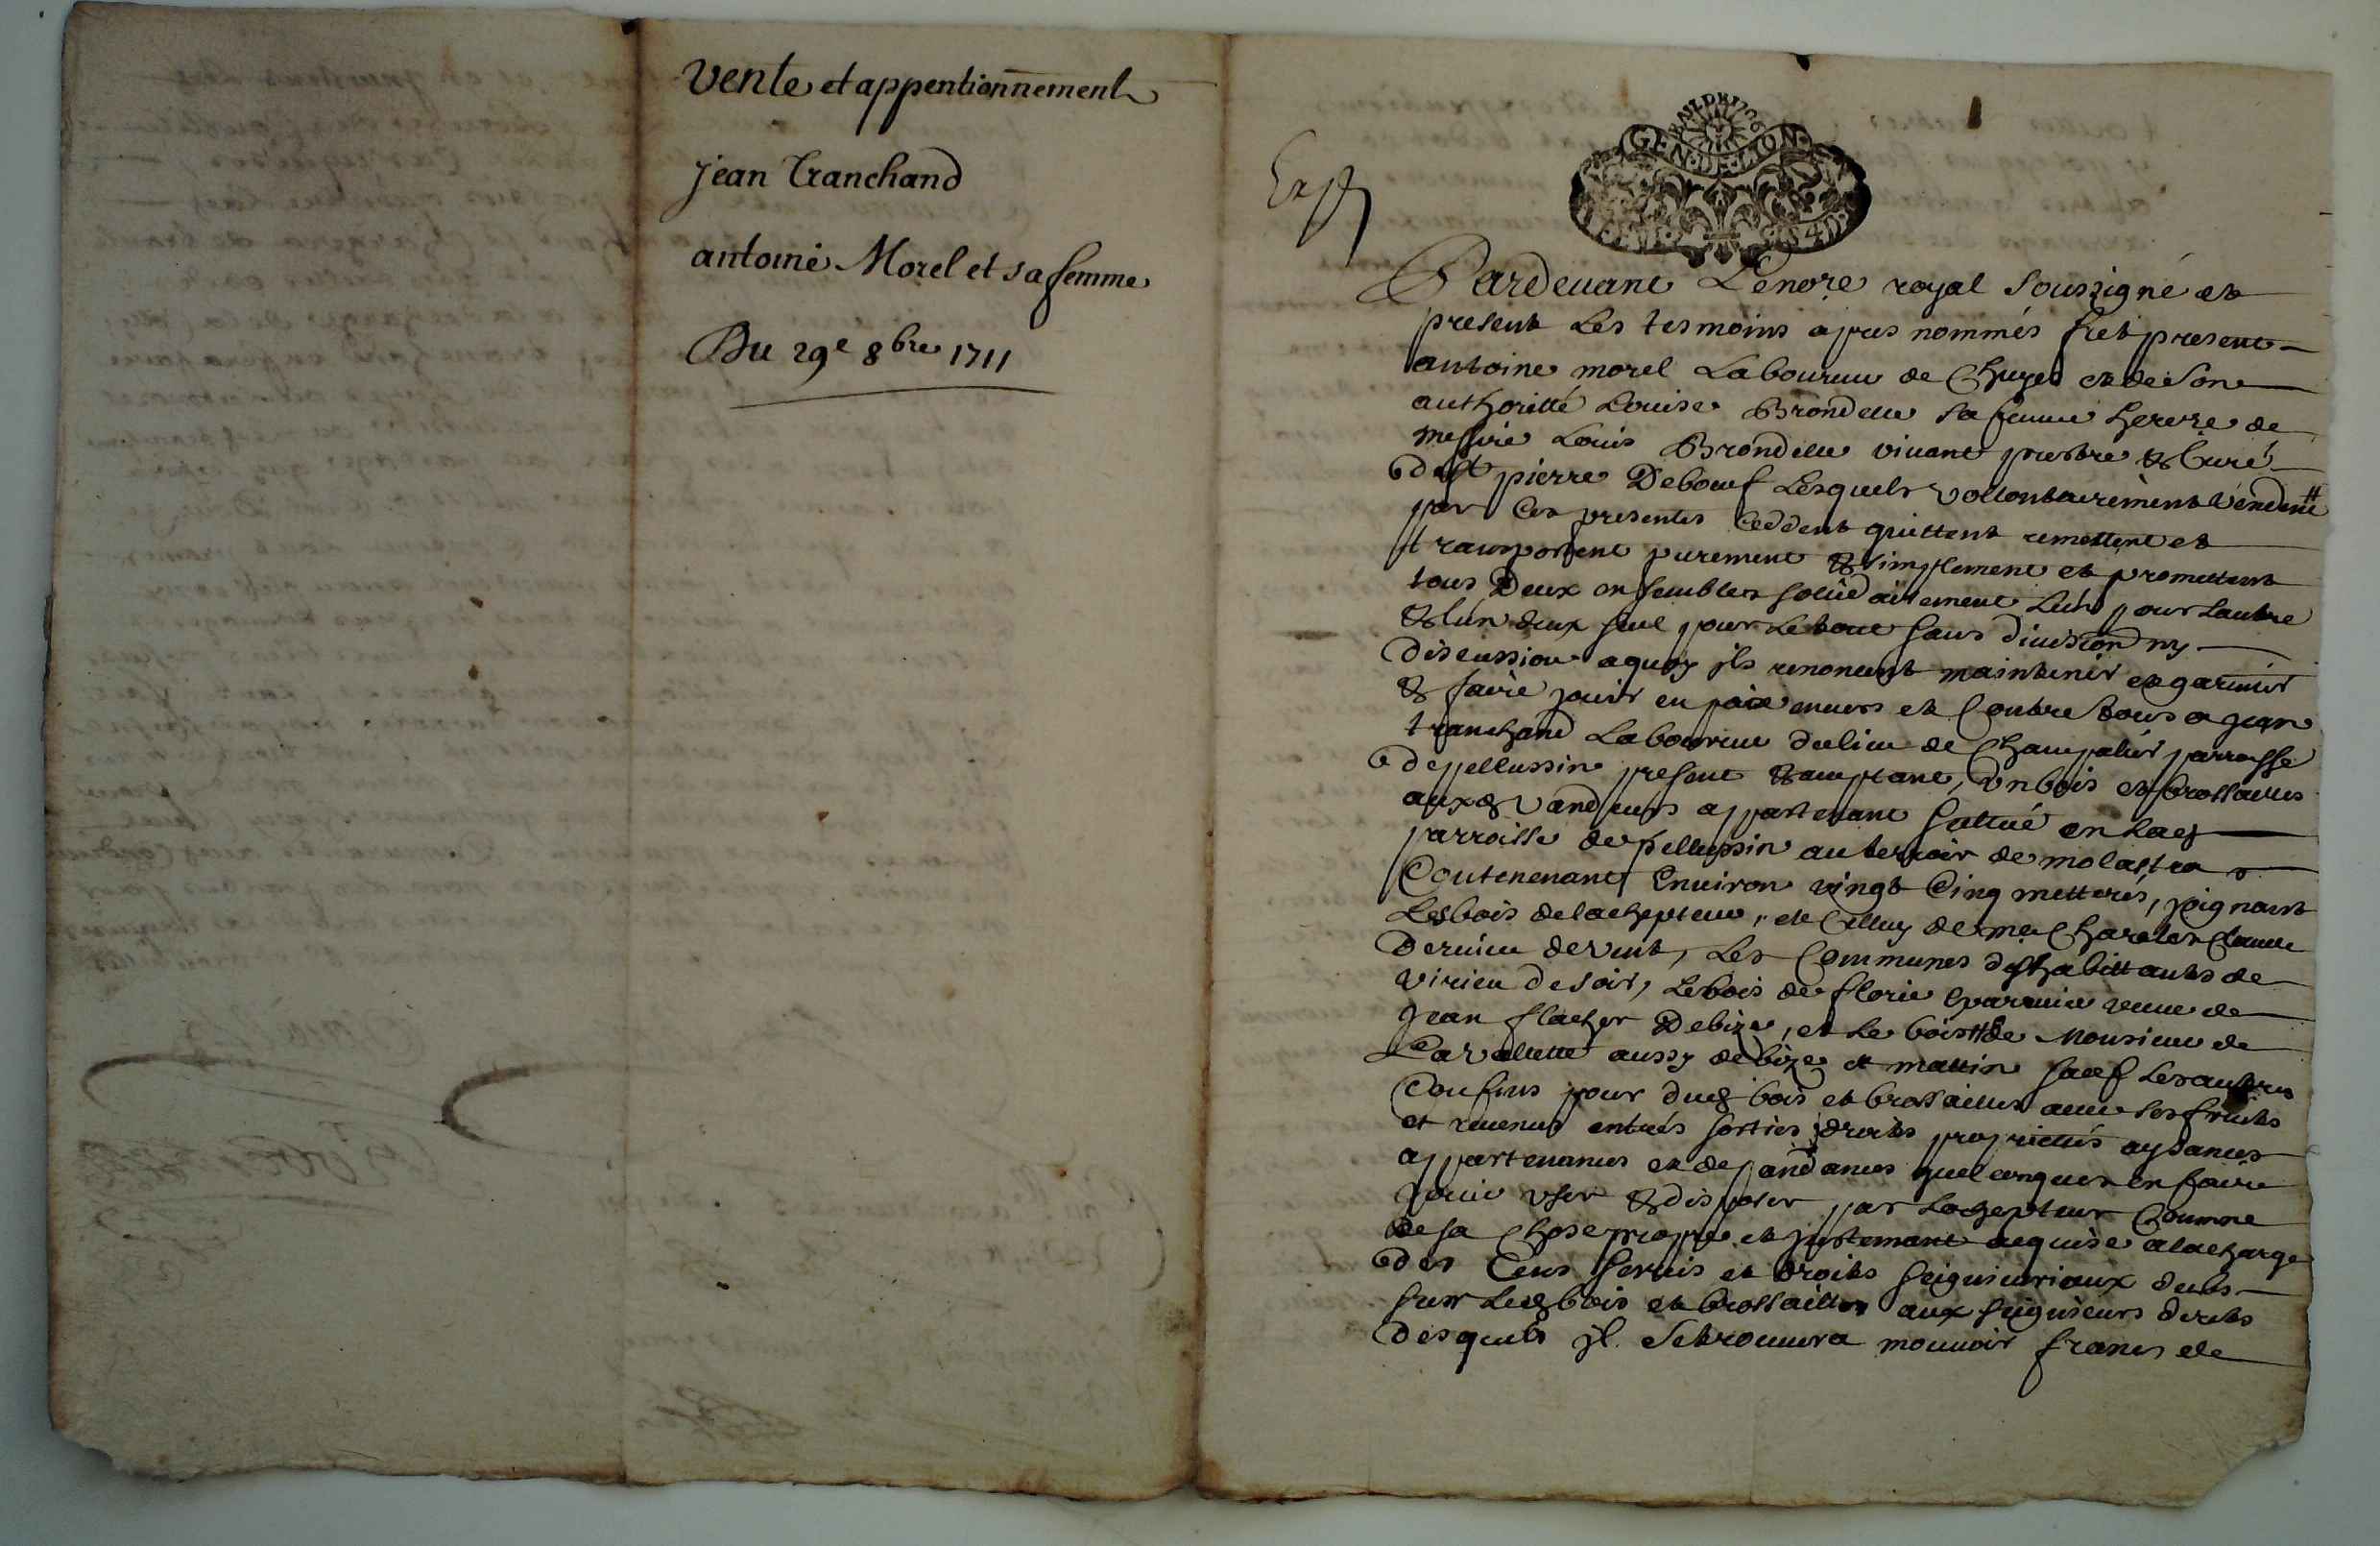 vente et appentionnement
jean Tranchand
antoine Morel et sa femme
Du 29e 8bre 1711
Exp
GEN·DE·LION
Pardevant Lenore royal soussigné et
present Les tesmoins apres nommés fut present
antoine morel Laboureur de Chuyes et de son
authoritté Louise Brondelle sa femme herere de
messire Louis Brondelle vivant prestre & Curé
de st pierre Deboeuf Lesquels vollontairement vendent
par Ces presentes Ceddent quittent remettent et
transportent purement & simplement et promettent
tous Deux ensembles sollidairement Lun pour Lautre
& lun deux seul pour Letout sans division ny
discussion aquoy ils renoncent maintenir et garentir
& faire jouir en paix envers et Contre tous a jean
tranchand Laboureur dulieu de Champalier parroisse
de pellussin present & acceptant, un bois et brossailles
auxds vandeurs appartenant scittué en lad
parroisse de pellussin au terroir de molastra
Contenenant Environ vingt Cinq metterés, joignant
Lesbois delachepteur, et Celluy de me Charles Claude
Dernieu devent, Les Communes desthabittants de
virieu de soir, Lebois de florie veuve de
jean flacher Debize, et Le bois de Monsieur de
Lavallette aussy de bize et mattin sauf Les autres
Confins pour dud bois et brossailles avec ses fruits
et revenus entrés sorties droits proprietés aysances
appartenances et depandances quelconques en faire
jouir user & disposer par Lachepteur Comme
de sa Chose propre et justemant acquise alacharge
des Cens servis et droits seigneuriaux deubs
sur Lesd bois et brossailles aux seigneurs directs
desquels jl setrouvera mouvoir francs de